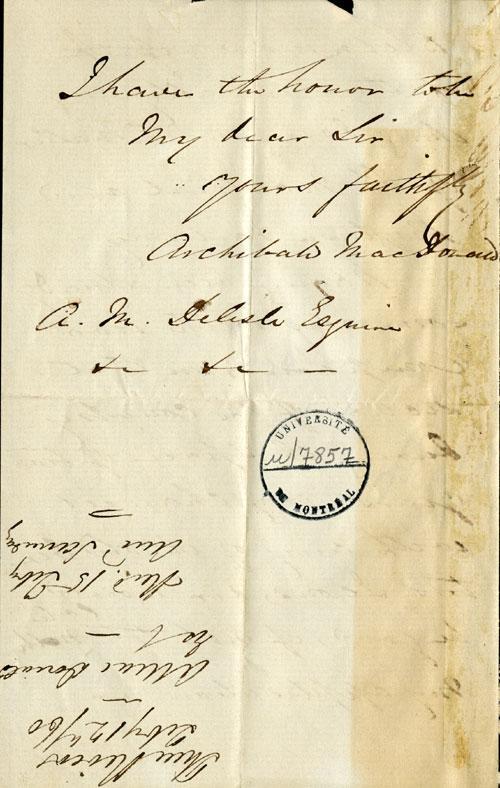 I have the honor to be
My dear Sir
Yours faithfully
Archibald MacDonald
A. M. Delisle Esquire
&c &c —
UNIVERSITÉ
u/7857
DE MONTRÉAL
Three Rivers
Feby 12 /60
A Mac Donald
Recd. 15 Feby